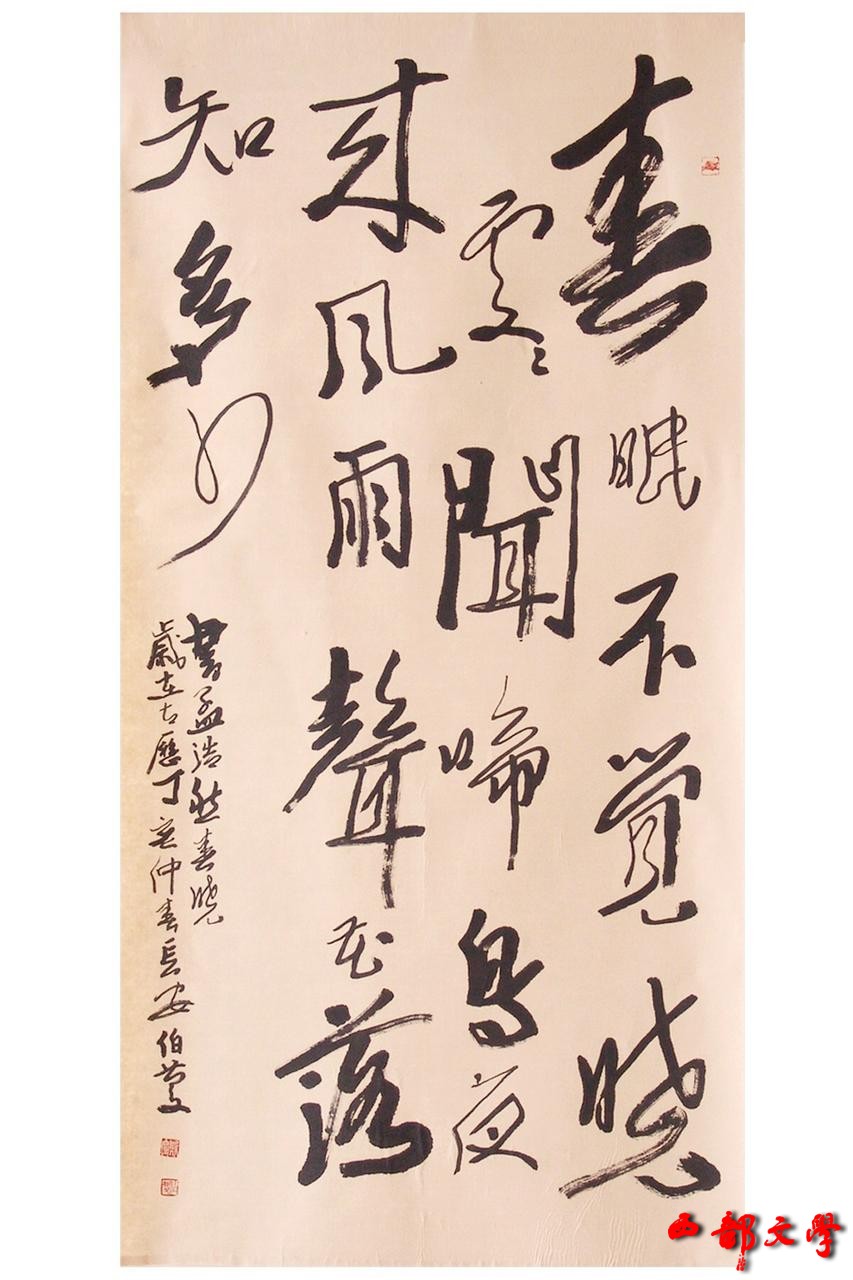 春眠不覺曉
處〻聞啼鳥夜
來風雨聲花落
知多少
書孟浩然春曉
歲在古曆丁亥仲春長安伯慶
西部文學